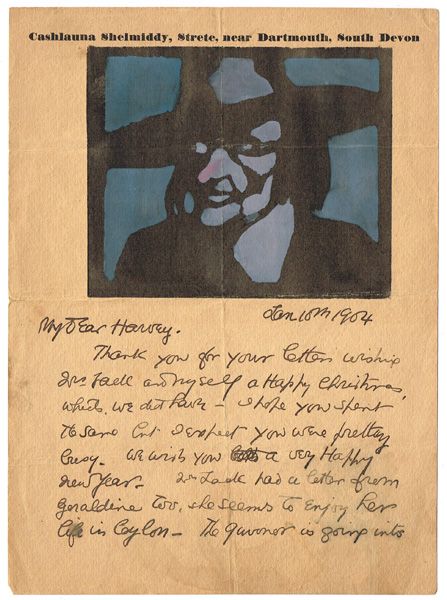 Cashlauna Shelmiddy, Strete, near Dartmouth, South Devon
Jan 10th 1904
My Dear Harvey.
Thank you for your letters wishing
Mrs Jack and myself a Happy Christmas,
which we did have – I hope you spent
the same but I expect you were pretty
busy. We wish you a very Happy
New Year. Mrs Jack had a letter from
Geraldine too, she seems to enjoy her
life in Ceylon – The guvonor is going into